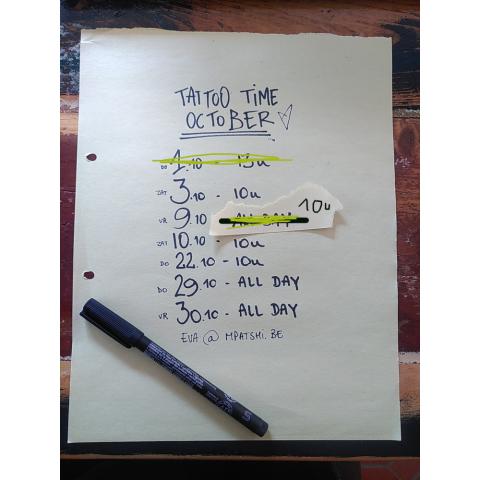 TATTOO TIME
OCTOBER
DO 1.10 - 13u
ZAT 3.10 - 10u
VR 9.10 - ALL DAY 10u
ZAT 10.10 - 10u
DO 22.10 - 10u
DO 29.10 - ALL DAY
VR 30.10 - ALL DAY
EVA @ MPATSHI.BE